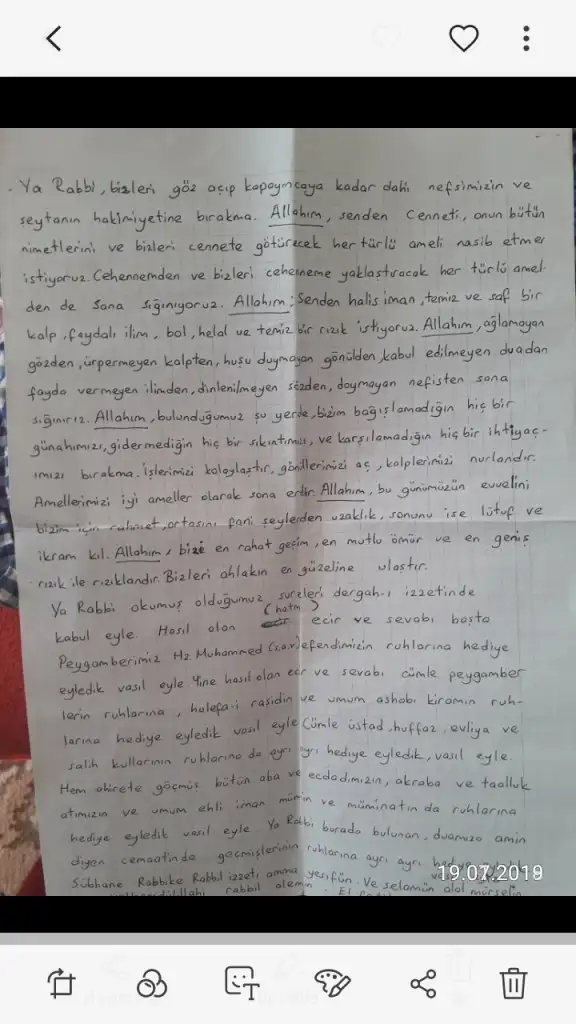 . Ya Rabbi, bizleri göz açıp kapayıncaya kadar dahi nefsimizin ve
şeytanın hakimiyetine bırakma. Allahım, senden Cenneti, onun bütün
nimetlerini ve bizleri cennete götürecek her türlü ameli nasib etmeni
istiyoruz. Cehennemden ve bizleri cehenneme yaklaştıracak her türlü amel-
den de Sana Sığınıyoruz. Allahım; Senden halis iman, temiz ve saf bir
kalp, faydalı ilim, bol, helal ve temiz bir rızık istiyoruz. Allahım, ağlamayan
gözden, ürpermeyen kalpten, huşu duymayan gönülden, kabul edilmeyen duadan
fayda vermeyen ilimden, dinlenilmeyen sözden, doymayan nefisten sana
sığınırız. Allahım, bulunduğumuz şu yerde, bizim bağışlamadığın hiç bir
günahımızı, gidermediğin hiç bir sıkıntımızı, ve karşılamadığın hiç bir ihtiyac-
ımızı bırakma. İşlerimizi kolaylaştır, gönüllerimizi aç, kalplerimizi nurlandır.
Amellerimizi iyi ameller olarak sona erdir. Allahım, bu günümüzün evvelini
bizim için rahmet, ortasını fani şeylerden uzaklık, sonunu ise lütuf ve
ikram kıl. Allahım, bizi en rahat geçim, en mutlu ömür ve en geniş
rızık ile rızıklandır. Bizleri ahlakın en güzeline ulaştır.
Ya Rabbi okumuş olduğumuz sureleri dergah-ı izzetinde
kabul eyle. Hasıl olan (hatm) ecir ve sevabı başta
Peygamberimiz Hz Muhammed (s.a.v) efendimizin ruhlarına hediye
eyledik vasıl eyle. Yine hasıl olan ecir ve sevabı cümle peygamber
lerin ruhlarına, hulefa-i raşidin ve umum ashabı kiramın ruh-
larına hediye eyledik vasıl eyle. Cümle üstad, huffaz, evliya ve
salih kullarının ruhlarına da ayrı ayrı hediye eyledik, vasıl eyle.
Hem ahirete göçmüş bütün aba ve ecdadımızın, akraba ve taalluk
atımızın ve umum ehli iman mümin ve müminatın da ruhlarına
hediye eyledik vasıl eyle. Ya Rabbi burada bulunan, duamıza amin
diyen cemaatinde geçmişlerinin ruhlarına ayrı ayrı hediye
Sübhane Rabbike Rabbil izzeti amma yesifün. Ve selamün alel mürselin
rabbil alemin. El
19.07.2019